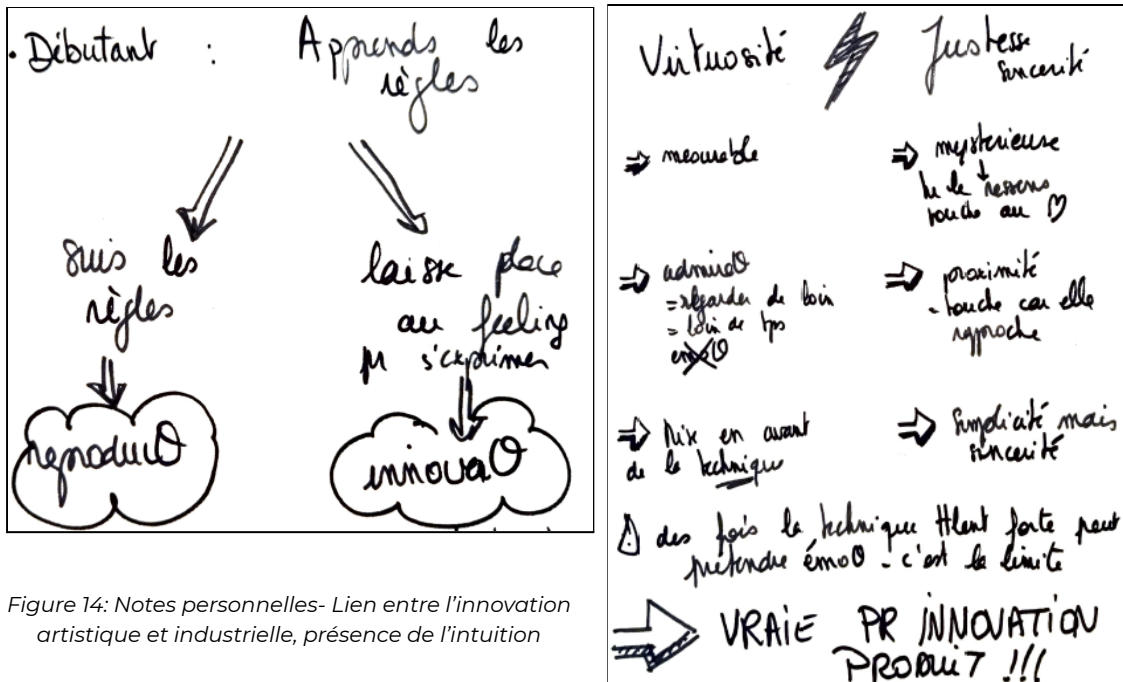 • Débutant : Apprends les
règles
suis les
règles
laisse place
au feeling
pr s'exprimer
reproducθ
innovaθ
Figure 14: Notes personnelles- Lien entre l'innovation
artistique et industrielle, présence de l'intuition
Virtuosité
Justesse
sincerité
⇒ mesurable
⇒ mysterieuse
↓
ressens
touche au ♡
⇒ admiraθ
= regarder de loin
= loin de tps
émoθ
⇒ proximité
- touche car elle
rapproche
⇒ Mise en avant
de la technique
⇒ Simplicité mais
sincerité
⚠ des fois la technique tllent forte peut
prétendre émoθ - c'est la limite
⇒ VRAIE PR INNOVATION
PRODUIT !!!